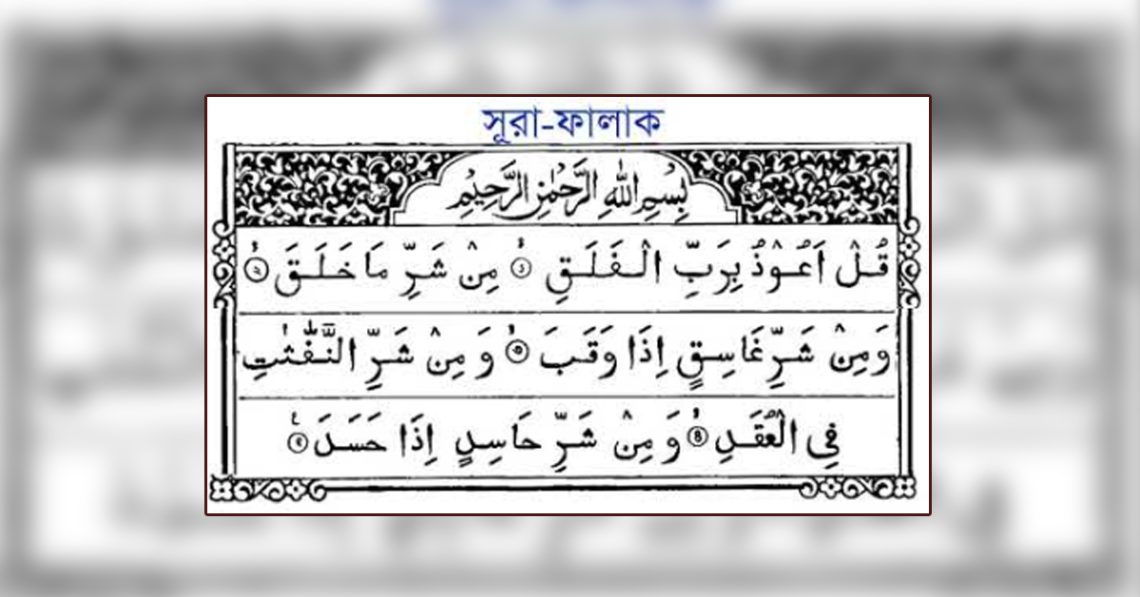 সূরা-ফালাক
بِسْمِ اللّٰهِ الرَّحْمٰنِ الرَّحِيْمِ
قُلْ اَعُوْذُ بِرَبِّ الْفَلَقِ ۙ﴿۱﴾ مِنْ شَرِّ مَا خَلَقَ ۙ﴿۲﴾
وَ مِنْ شَرِّ غَاسِقٍ اِذَا وَقَبَ ۙ﴿۳﴾ وَ مِنْ شَرِّ النَّفّٰثٰتِ
فِي الْعُقَدِ ۙ﴿۴﴾ وَ مِنْ شَرِّ حَاسِدٍ اِذَا حَسَدَ ﴿۵﴾